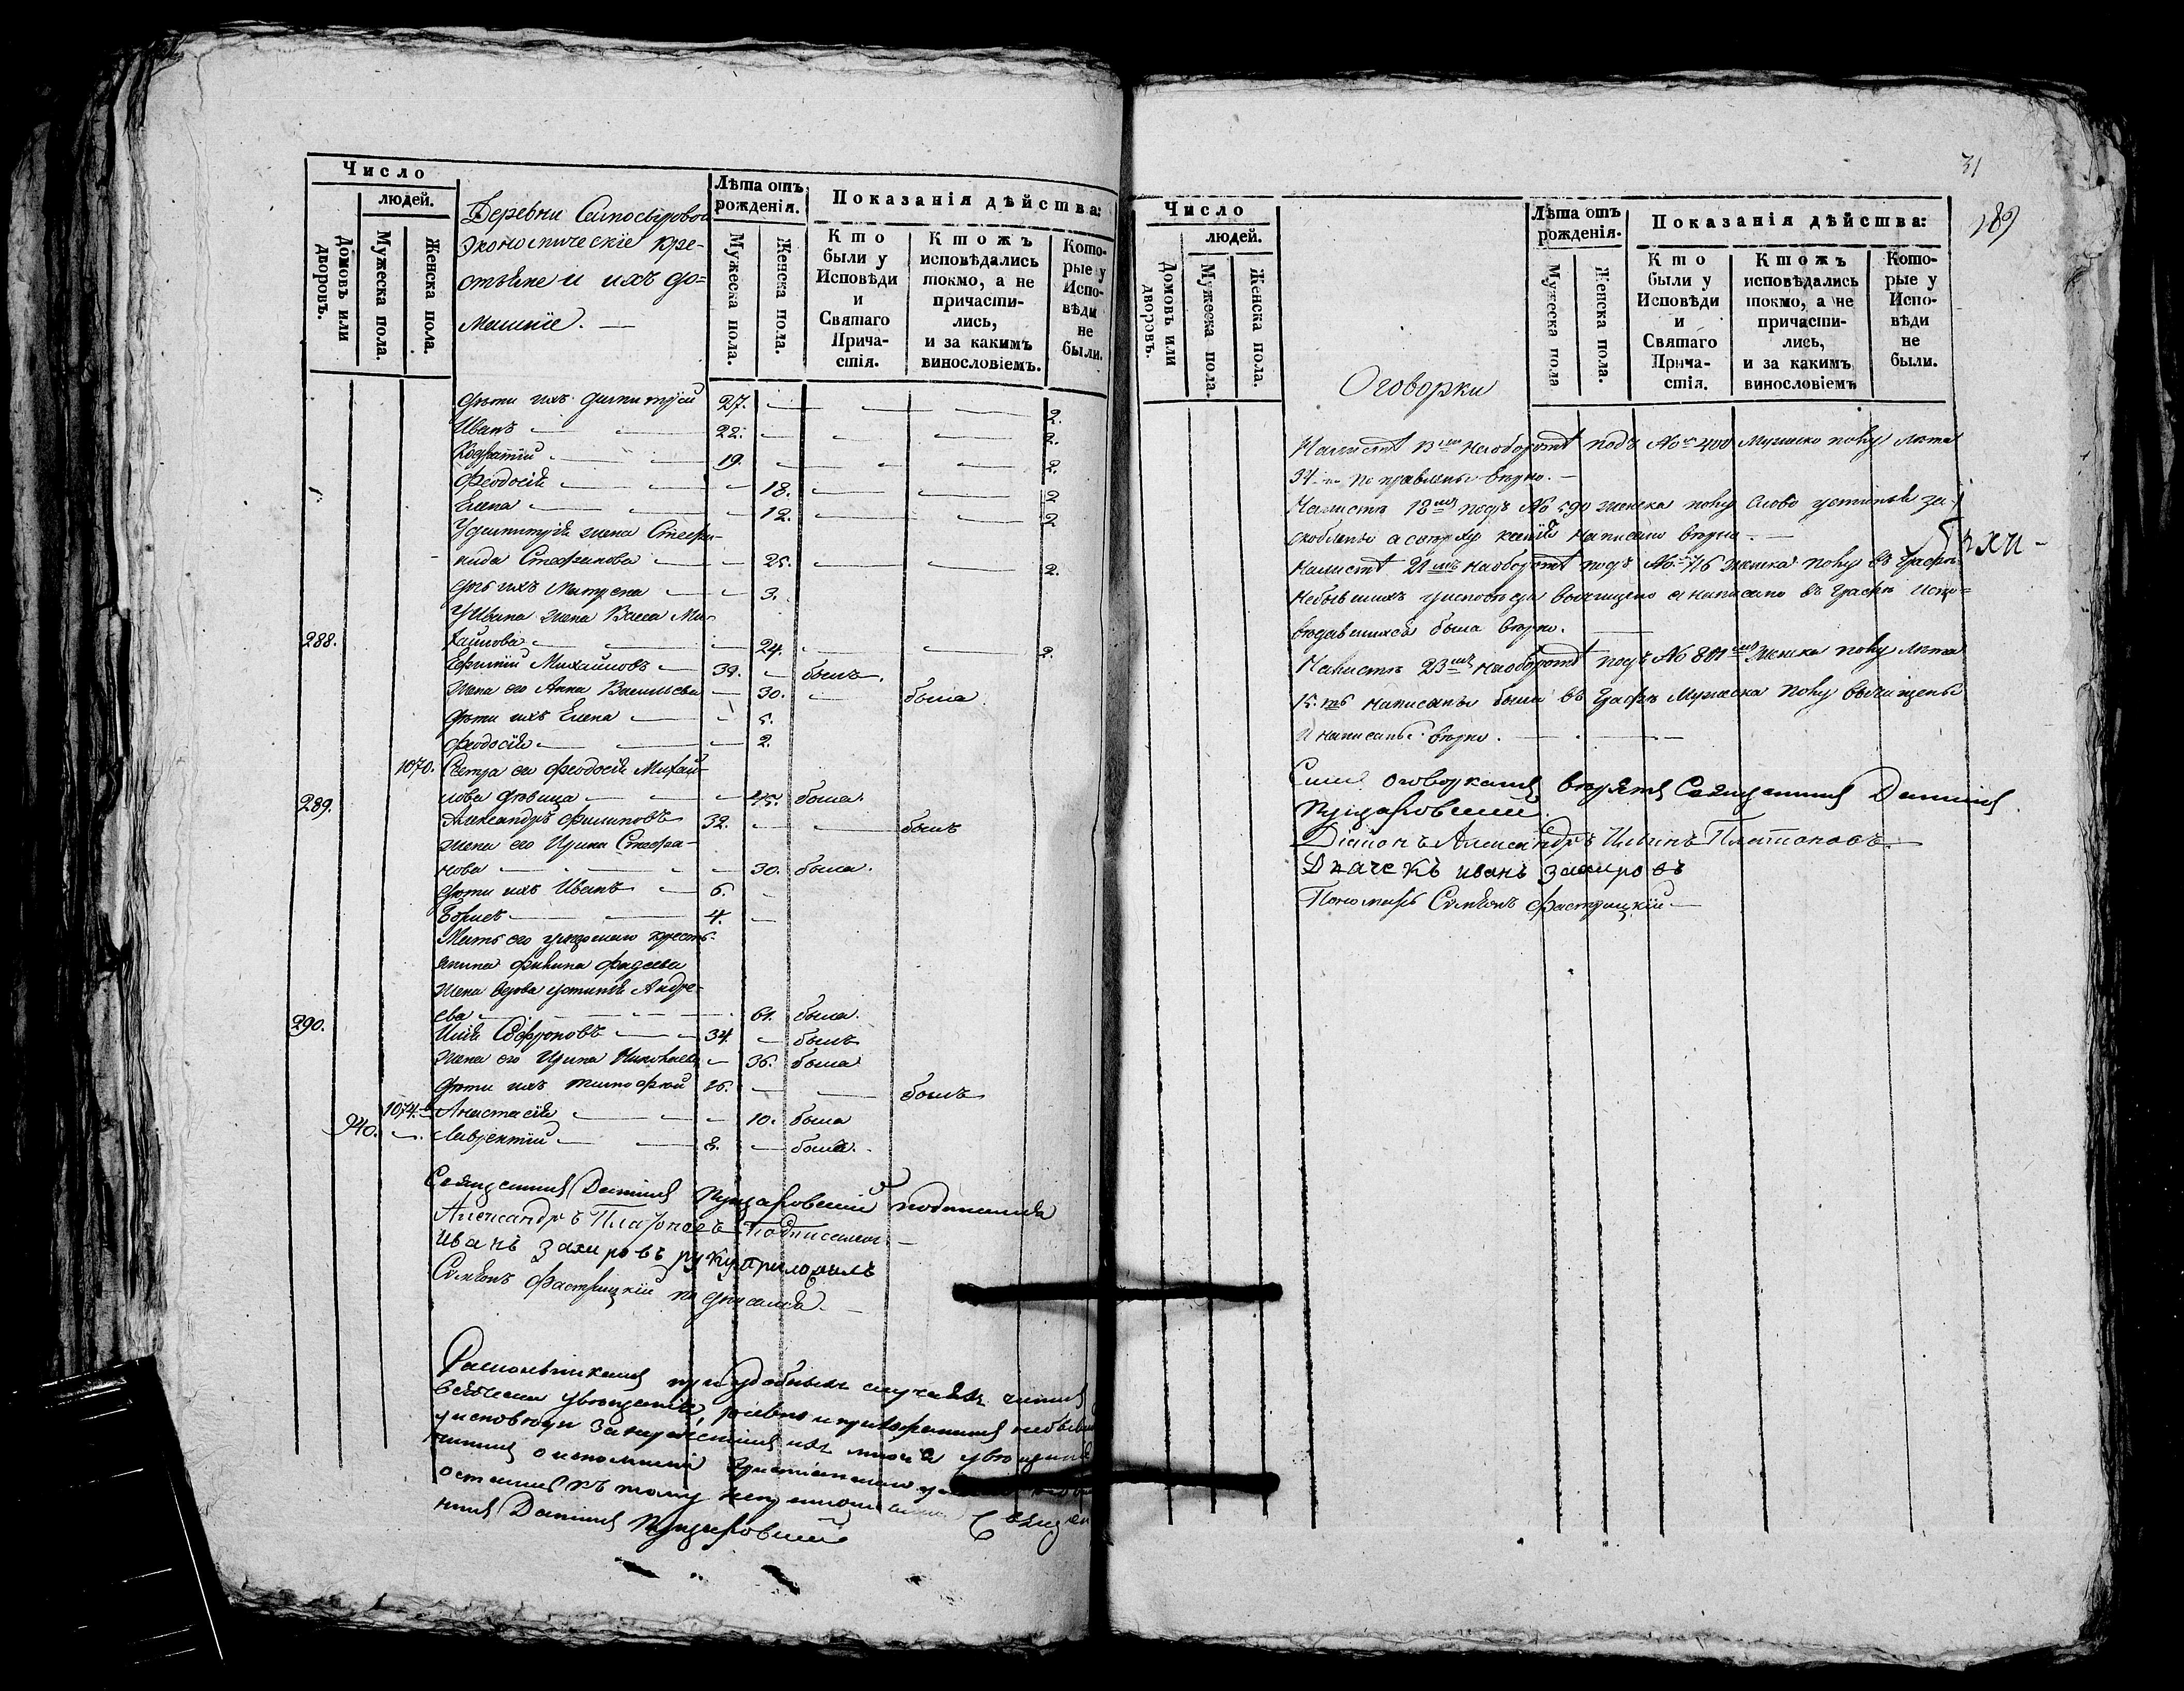 Число
людей.
Домовъ или дворовъ.
Мужеска пола.
Женска пола.
Деревни
Экономическіе кре-
стьяне и ихъ до=
машніе. —
Лѣта отъ рожденія.
Мужеска пола.
Женска пола.
Показанія дѣйства:
Кто были у Исповѣди и Святаго Прича- стія.
Ктожъ исповѣдались токмо, а не причасти- лись, и за какимъ винословіемъ.
Кото- рые у Испо- вѣди не были.
дѣти ихъ Димитрій 27. — — — 2.
Иванъ — — 22. — — — 2.
Кодратій — — 19. — — — 2.
Феодосія — — — 18. — — 2
Елена — — — 12. — — 2
У Димитрія жена Стефа-
нида Стефанова — — 25. — — 2.
дчь ихъ Матрена — — 3.
У Ивана жена Васса Ми-
хайлова — — — 24. — — 2.
288. Ефимій Михайловъ — 39. — былъ.
жена его Анна Васильева — 30. — была
дѣти ихъ Елена — — 5.
Феодосія — — — 2.
1070. Сестра его Феодосія Михай-
лова дѣвица — — — 45. была.
289. Александръ Филиповъ 32. — — былъ
жена его Ирина Стефа-
нова — — — 30. была.
дѣти ихъ Иванъ — 6. —
Борисъ — — 4. —
Мать его умершаго кресть-
янина Филипа Фадеева
жена вдова Устинья Андре-
ева — — — 61. была.
290. Илія Софроновъ — — 34. — былъ
жена его Ирина Николаева — 36. была
дѣти ихъ Тимофей 16. — — былъ
1074. Анастасія — — — 10. была
940. — Лаврентій — — 8. — была.
Священникъ Даміанъ подписался
Александръ Платоновъ подписался —
Иванъ Захаровъ руку приложилъ
Сумеонъ Фастрицкій подписался. —
при удобныхъ случаяхъ
увѣщанія, равно и
увѣщанія
къ тому Священ
никъ Даміанъ
31
189
Число
людей.
Домовъ или дворовъ.
Мужеска пола.
Женска пола.
Оговорки
Лѣта отъ рожденія.
Мужеска пола
Женска пола.
Показанія дѣйства:
Кто были у Исповѣди и Святаго Прича- стія.
Ктожъ исповѣдались токмо, а не причасти- лись, и за какимъ винословіемъ
Кото- рые у Испо- вѣди не были.
На листѣ 13мъ на оборотѣ подъ № 400 Мужеска полу лѣта
34 — поправлены вѣрно. —
На листѣ 18мъ подъ № 590 женска полу слово Устинья за-
скоблено а сверху Ксенія написано вѣрно. —
На листѣ 21мъ на оборотѣ подъ № 716 женска полу въ графѣ
небывшихъ у исповѣди вычищено а написано въ графѣ испо=
вѣдавшихся была вѣрно. —
На листѣ 23мъ на оборотѣ подъ № 801мъ женска полу лѣта
15.ть написаны были въ графѣ Мужеска полу вычищены
и написаны вѣрно. — — —
Священникъ Даміанъ
Діаконъ Александръ Ильинъ Платоновъ. —
Дьячекъ Иванъ Захаровъ
Пономарь Сумеонъ Фастрицкій —